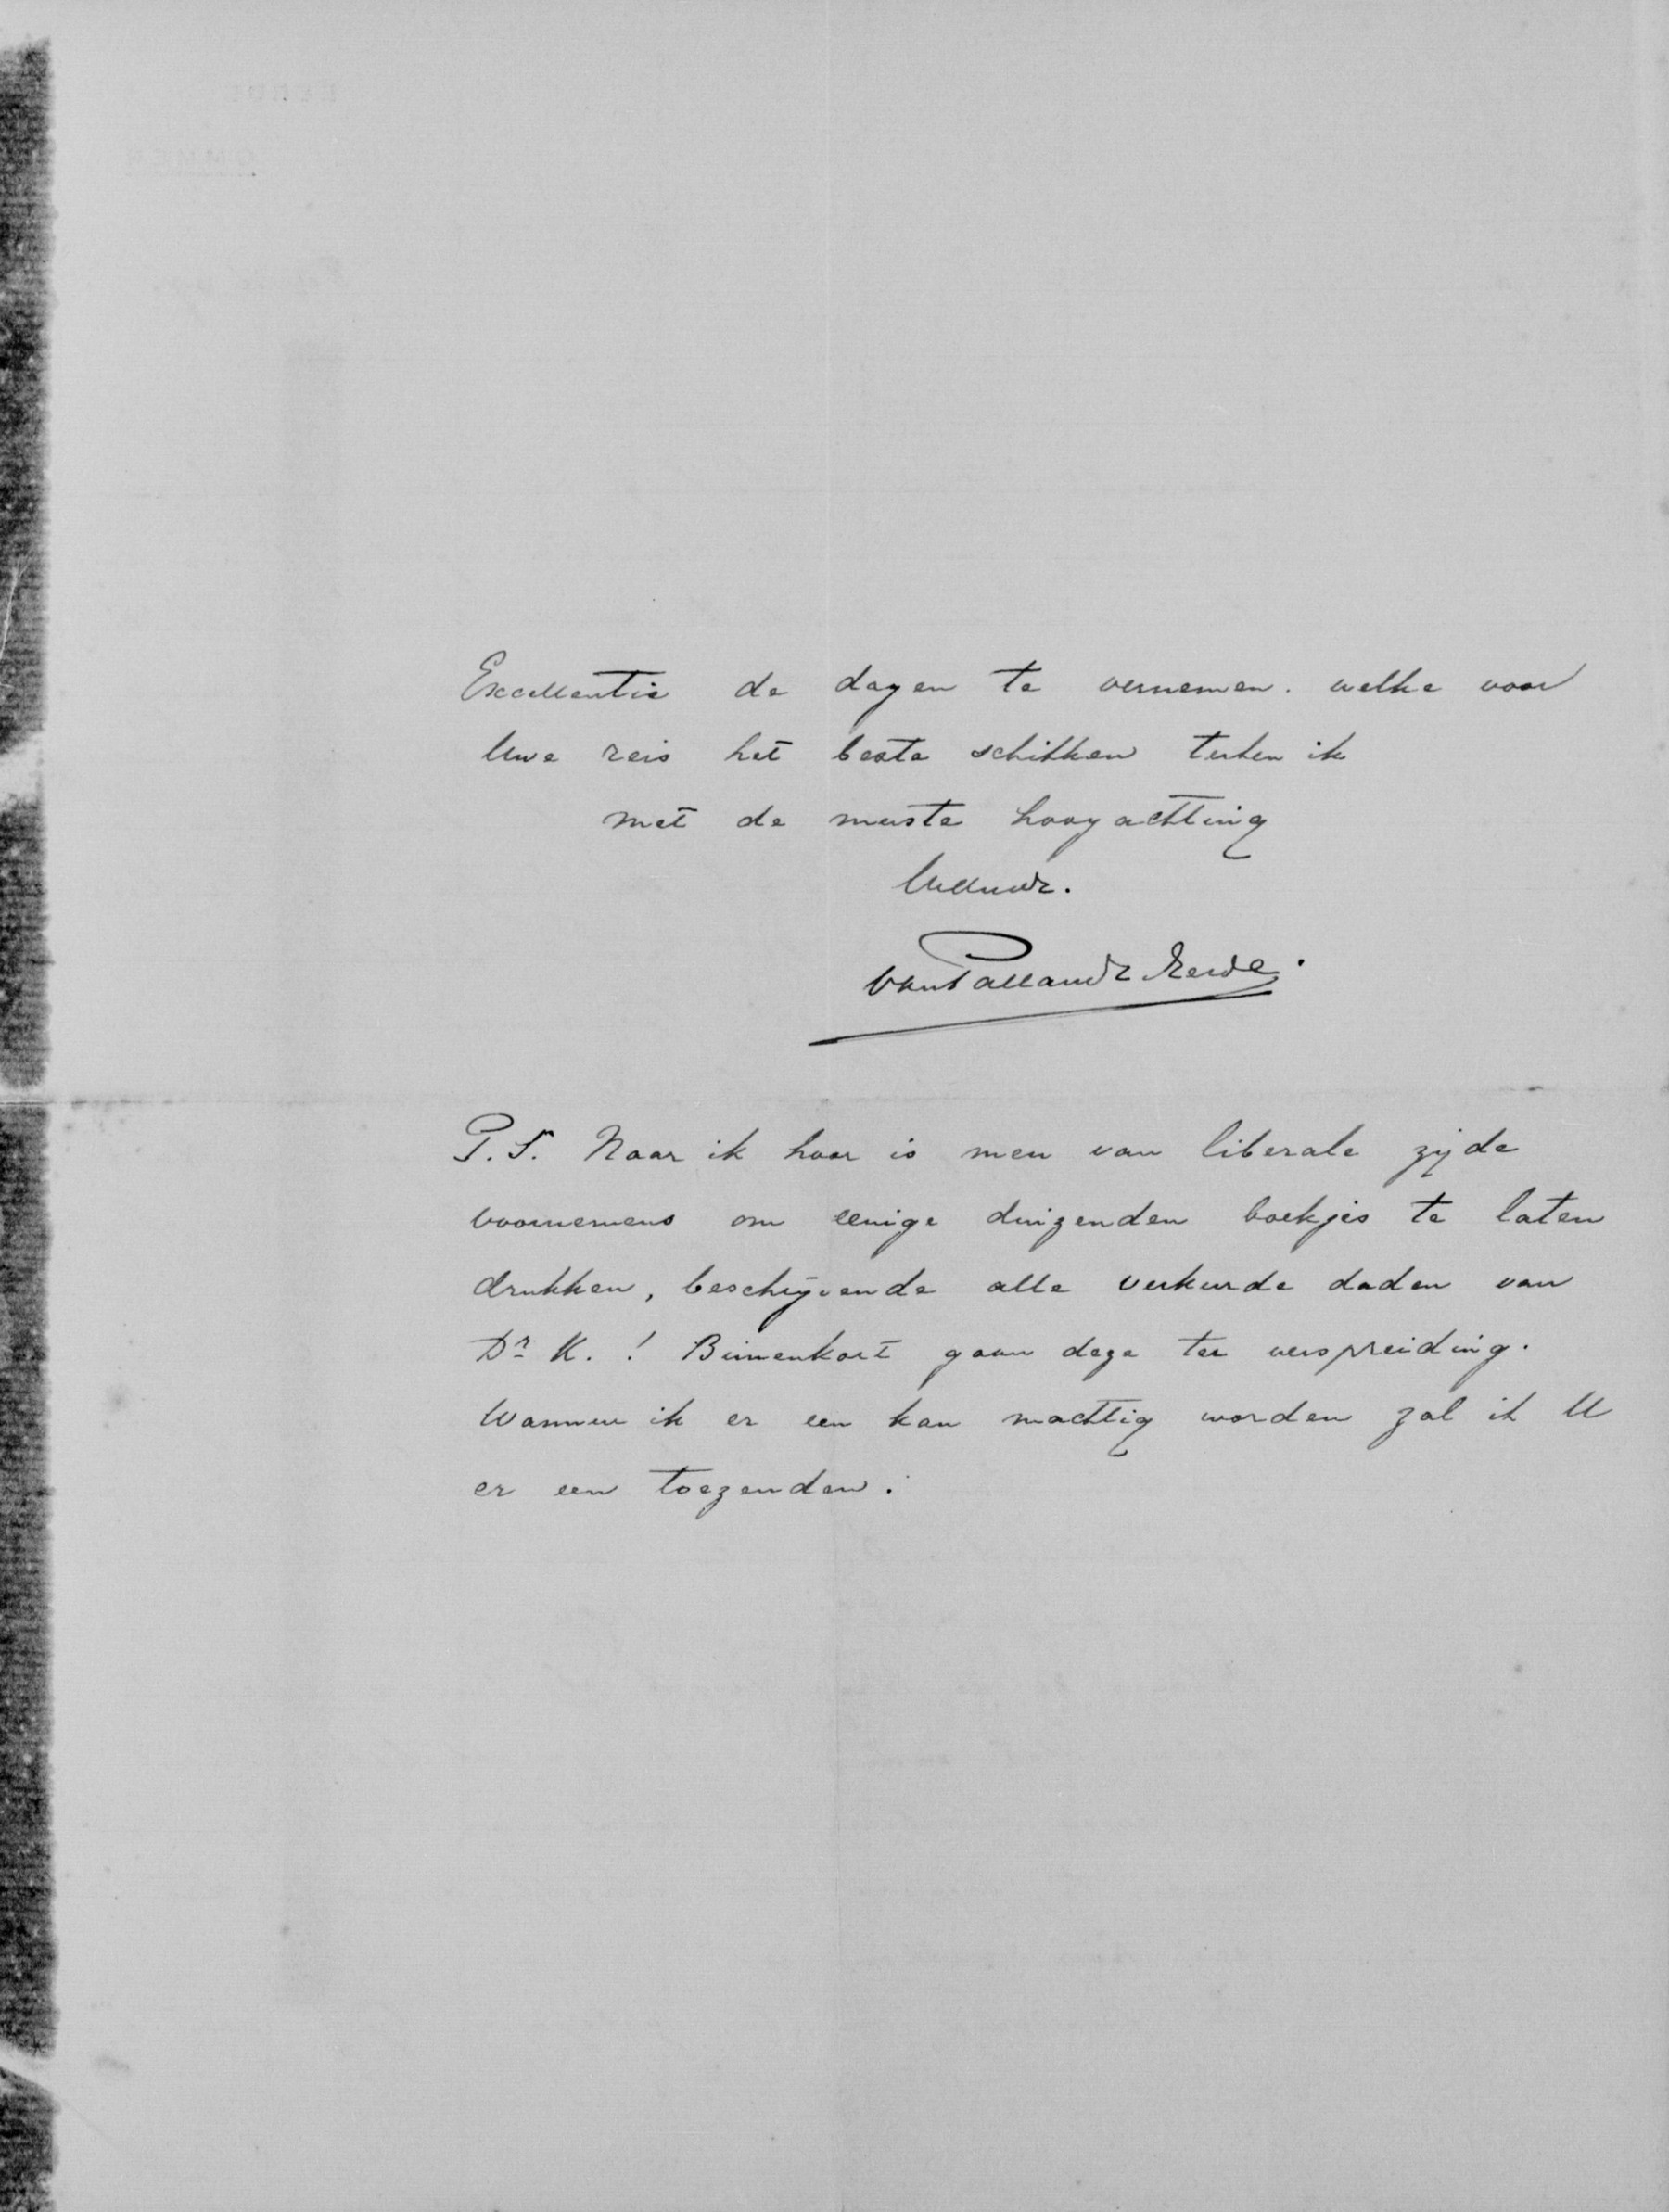 Excellentie de dagen te vernemen. welke voor
Uwe reis het beste schikken teeken ik
met de meeste hoogachting
Uwedwdr.
van Pallandt Eerde.
P.S. Naar ik hoor is men van liberale zijde
voornemens om eenige duizenden boekjes te laten
drukken, beschrijvende alle verkeerde daden van
Dr K. ! Binnenkort gaan deze ter verspreiding.
Wanneer ik er een kan machtig worden zal ik U
er een toezenden.